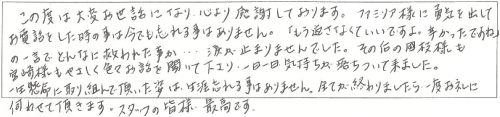 この度は大変お世話になり、心より感謝しております。ファミリア様に勇気を出して
お電話をした時の事は今でも忘れる事はありません。「もう返さなくていいですよ。辛かったですね」
の一言でどんなに救われた事か…涙が止まりませんでした。その他の 様も
宮崎様もやさしく色々お話を聞いて下さり、一日一日気持ちが落ちついて来ました。
一生懸命に取り組んで頂いた姿は、生涯忘れる事はありません。全てが終わりましたら一度お礼に
伺わせて頂きます。スタッフの皆様、最高です。